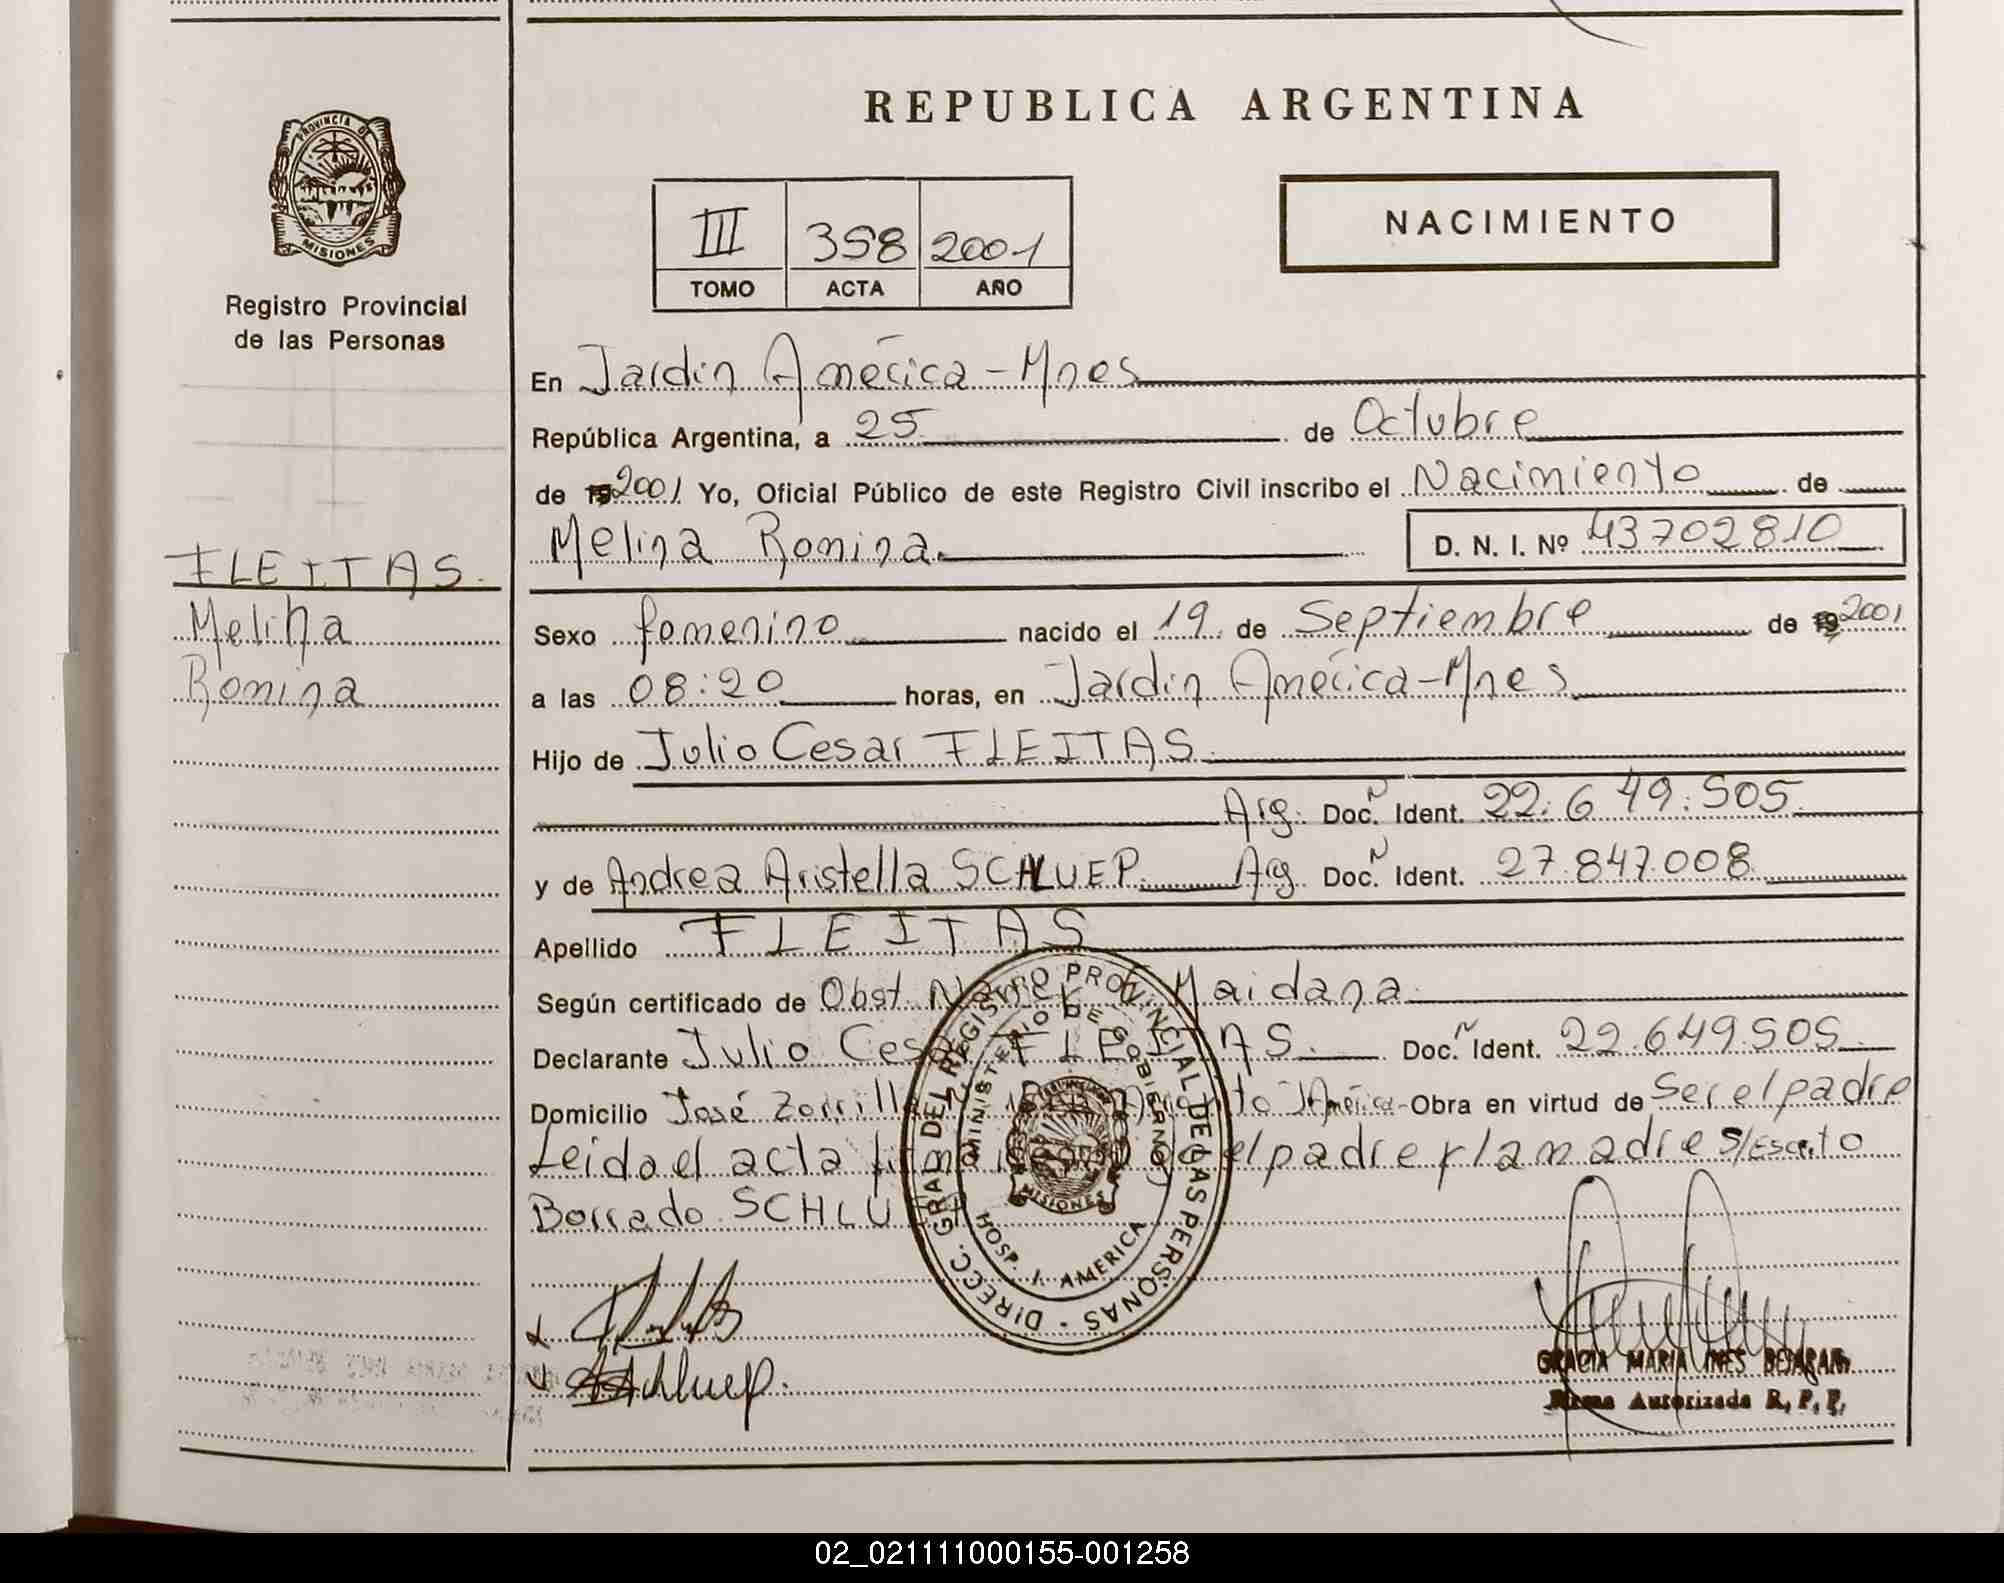 REPUBLICA ARGENTINA
PROVINCIA DE MISIONES
Registro Provincial
de las Personas
III 358 2001
TOMO ACTA AÑO
NACIMIENTO
En Jardin América-Mnes
República Argentina, a 25 de Octubre
de 19 2001 Yo, Oficial Público de este Registro Civil inscribo el Nacimiento de
Melina Romina. D. N. I. Nº 43702810
FLEITAS.
Melina
Romina
Sexo femenino nacido el 19 de Septiembre de 19 2001
a las 08:20 horas, en Jardin América-Mnes
Hijo de Julio Cesar FLEITAS.
Arg. Doc. N Ident. 22.649.505
y de Andrea Aristella SCHLUEP. Arg. Doc. N Ident. 27.847.008
Apellido FLEITAS
Según certificado de Obst. Maidana
Declarante Julio Cesar FLEITAS. Doc. N Ident. 22.649.505
Domicilio José Zorrilla J América- Obra en virtud de Ser el padre
Leida el acta el padre y la madre S/Escrito
Borrado SCHLU
DIRECC. GRAL DEL REGISTRO PROVINCIAL DE LAS PERSONAS -
MINISTERIO DE GOBIERNO
MISIONES
HOSP. J. AMERICA
Schluep.
GRACIA MARIA INES BEJARAN
Firma Autorizada R. P. P.
02_021111000155-001258